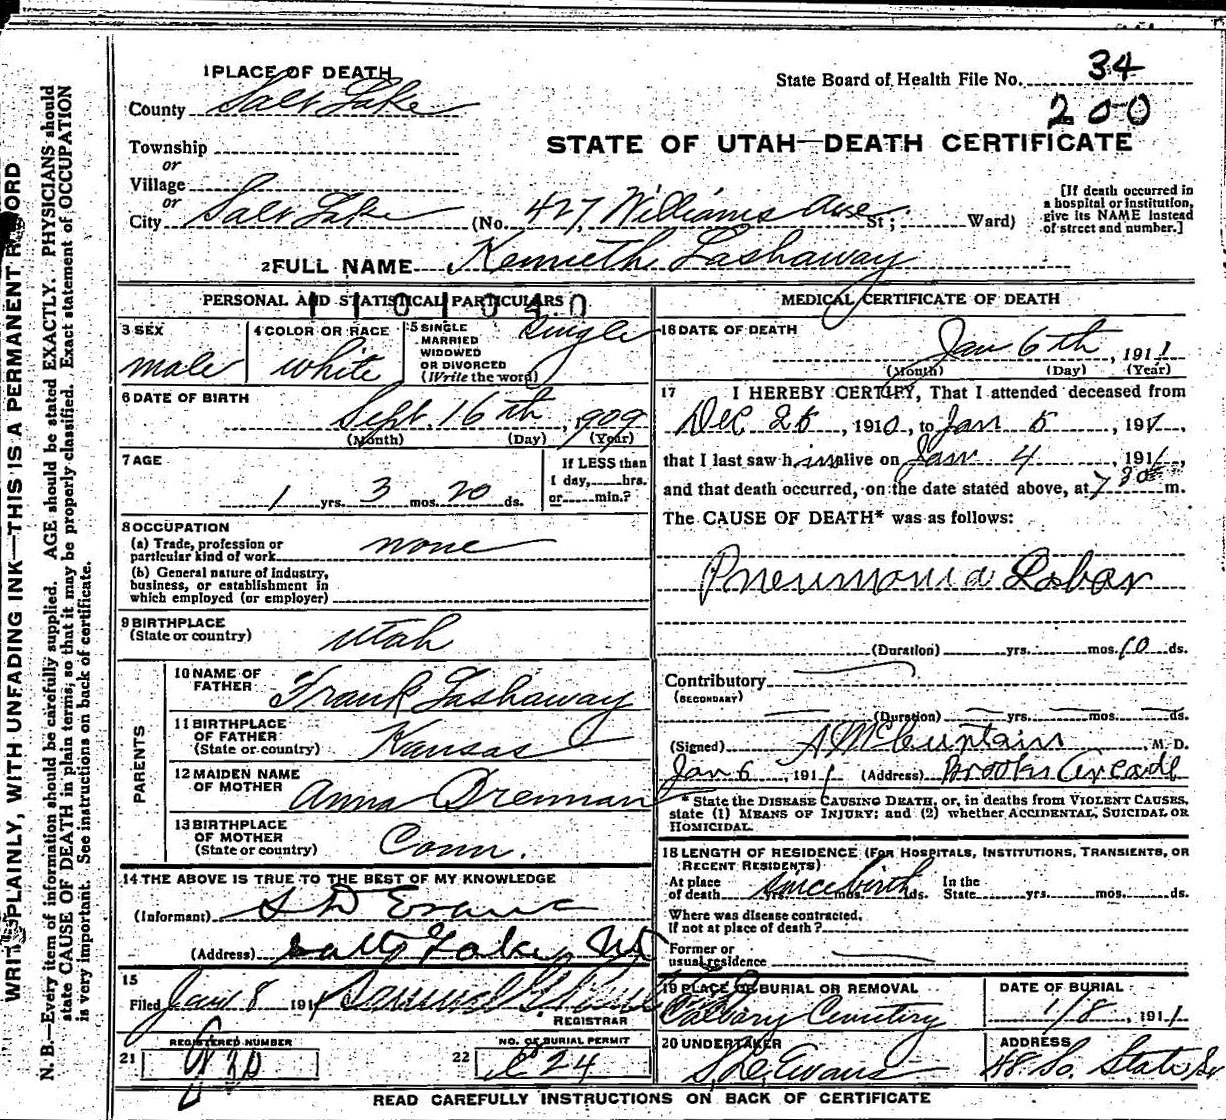 1 PLACE OF DEATH
State Board of Health File No. 34
County Salt Lake
200
STATE OF UTAH—DEATH CERTIFICATE
Township
or
Village
or
City Salt Lake (No. 427 Williams Ave St.; Ward)
[If death occurred in
a hospital or institution,
give its NAME instead
of street and number.]
2 FULL NAME Kenneth Lashaway
PERSONAL AND STATISTICAL PARTICULARS
3 SEX
male
4 COLOR OR RACE
white
5 SINGLE
MARRIED
WIDOWED
OR DIVORCED
(Write the word)
Single
6 DATE OF BIRTH
Sept. 16th, 1909
(Month) (Day) (Year)
7 AGE
1 yrs. 3 mos. 20 ds.
If LESS than
1 day, hrs.
or min.?
8 OCCUPATION
(a) Trade, profession or
particular kind of work none
(b) General nature of industry,
business, or establishment in
which employed (or employer)
9 BIRTHPLACE
(State or country) Utah
PARENTS
10 NAME OF
FATHER Frank Lashaway
11 BIRTHPLACE
OF FATHER
(State or country) Kansas
12 MAIDEN NAME
OF MOTHER Anna Drennan
13 BIRTHPLACE
OF MOTHER
(State or country) Conn.
14 THE ABOVE IS TRUE TO THE BEST OF MY KNOWLEDGE
(Informant) S D Evans
(Address) Salt Lake, Ut
15
Filed Jan 8 191
REGISTRAR
21 REGISTERED NUMBER
22 NO. OF BURIAL PERMIT
24
MEDICAL CERTIFICATE OF DEATH
16 DATE OF DEATH
Jan 6th, 1911
(Month) (Day) (Year)
17 I HEREBY CERTIFY, That I attended deceased from
Dec 25, 1910, to Jan 5, 1911,
that I last saw him alive on Jan 4, 1911,
and that death occurred, on the date stated above, at 7 30 m.
The CAUSE OF DEATH* was as follows:
Pneumonia Lobar
(Duration) yrs. mos. 10 ds.
Contributory
(SECONDARY)
(Duration) yrs. mos. ds.
(Signed) , M. D.
Jan 6, 1911 (Address) Brooks Arcade
* State the DISEASE CAUSING DEATH, or, in deaths from VIOLENT CAUSES,
state (1) MEANS OF INJURY; and (2) whether ACCIDENTAL, SUICIDAL OR
HOMICIDAL.
18 LENGTH OF RESIDENCE (FOR HOSPITALS, INSTITUTIONS, TRANSIENTS, OR
RECENT RESIDENTS)
At place
of death since birth ds.
In the
State yrs. mos. ds.
Where was disease contracted,
if not at place of death?
Former or
usual residence
19 PLACE OF BURIAL OR REMOVAL
Calvary Cemetery
DATE OF BURIAL
1/8, 1911
20 UNDERTAKER
S. D. Evans
ADDRESS
48 So. State St
READ CAREFULLY INSTRUCTIONS ON BACK OF CERTIFICATE
WRITE PLAINLY, WITH UNFADING INK—THIS IS A PERMANENT RECORD
N. B.—Every item of information should be carefully supplied. AGE should be stated EXACTLY. PHYSICIANS should
state CAUSE OF DEATH in plain terms, so that it may be properly classified. Exact statement of OCCUPATION
is very important. See instructions on back of certificate.